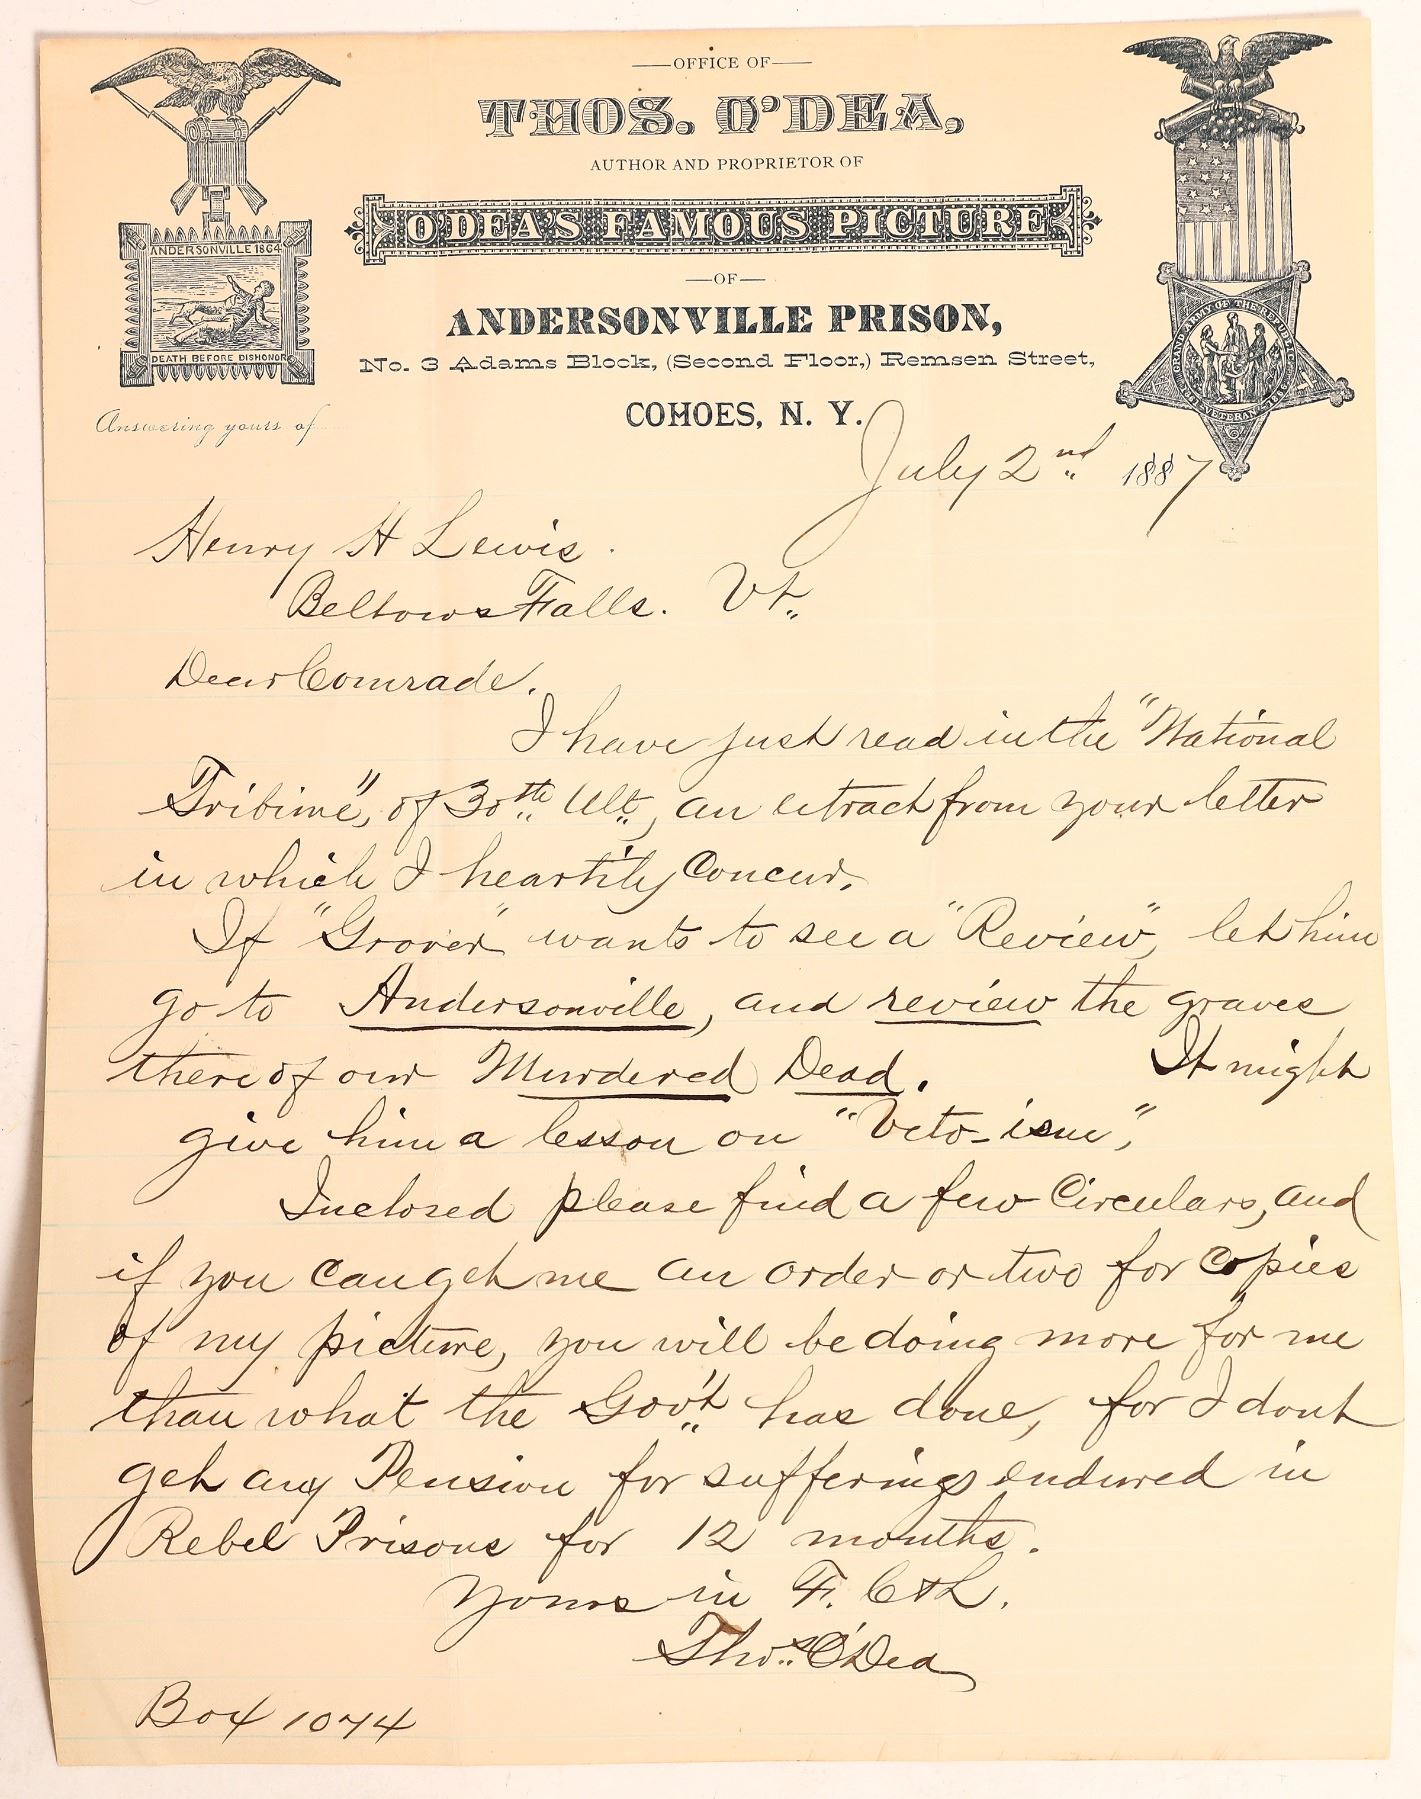 OFFICE OF
THOS. O'DEA,
AUTHOR AND PROPRIETOR OF
O'DEA'S FAMOUS PICTURE
OF
ANDERSONVILLE PRISON,
No. 3 Adams Block, (Second Floor,) Remsen Street,
COHOES, N. Y.
ANDERSONVILLE 1864
DEATH BEFORE DISHONOR
GRAND ARMY OF THE REPUBLIC
1861 VETERAN 1866
Answering yours of
July 2nd 1887
Henry H Lewis.
Bellows Falls. Vt.
Dear Comrade.
I have just read in the "National
Tribune", of 30th Ult, an extract from your letter
in which I heartily Concur.
If "Grover" wants to see a "Review", let him
go to Andersonville, and review the graves
there of our Murdered Dead. It might
give him a lesson on "Veto-ism",
Inclosed please find a few Circulars, and
if you can get me an order or two for Copies
of my picture, you will be doing more for me
than what the Gov't has done, for I dont
get any Pension for sufferings endured in
Rebel Prisons for 12 months.
Yours in F. C & L.
Thos. O'Dea
Box 1074